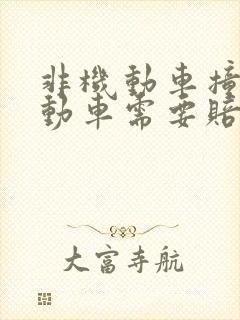 非機動車撞
動車需要賠
大富寺航